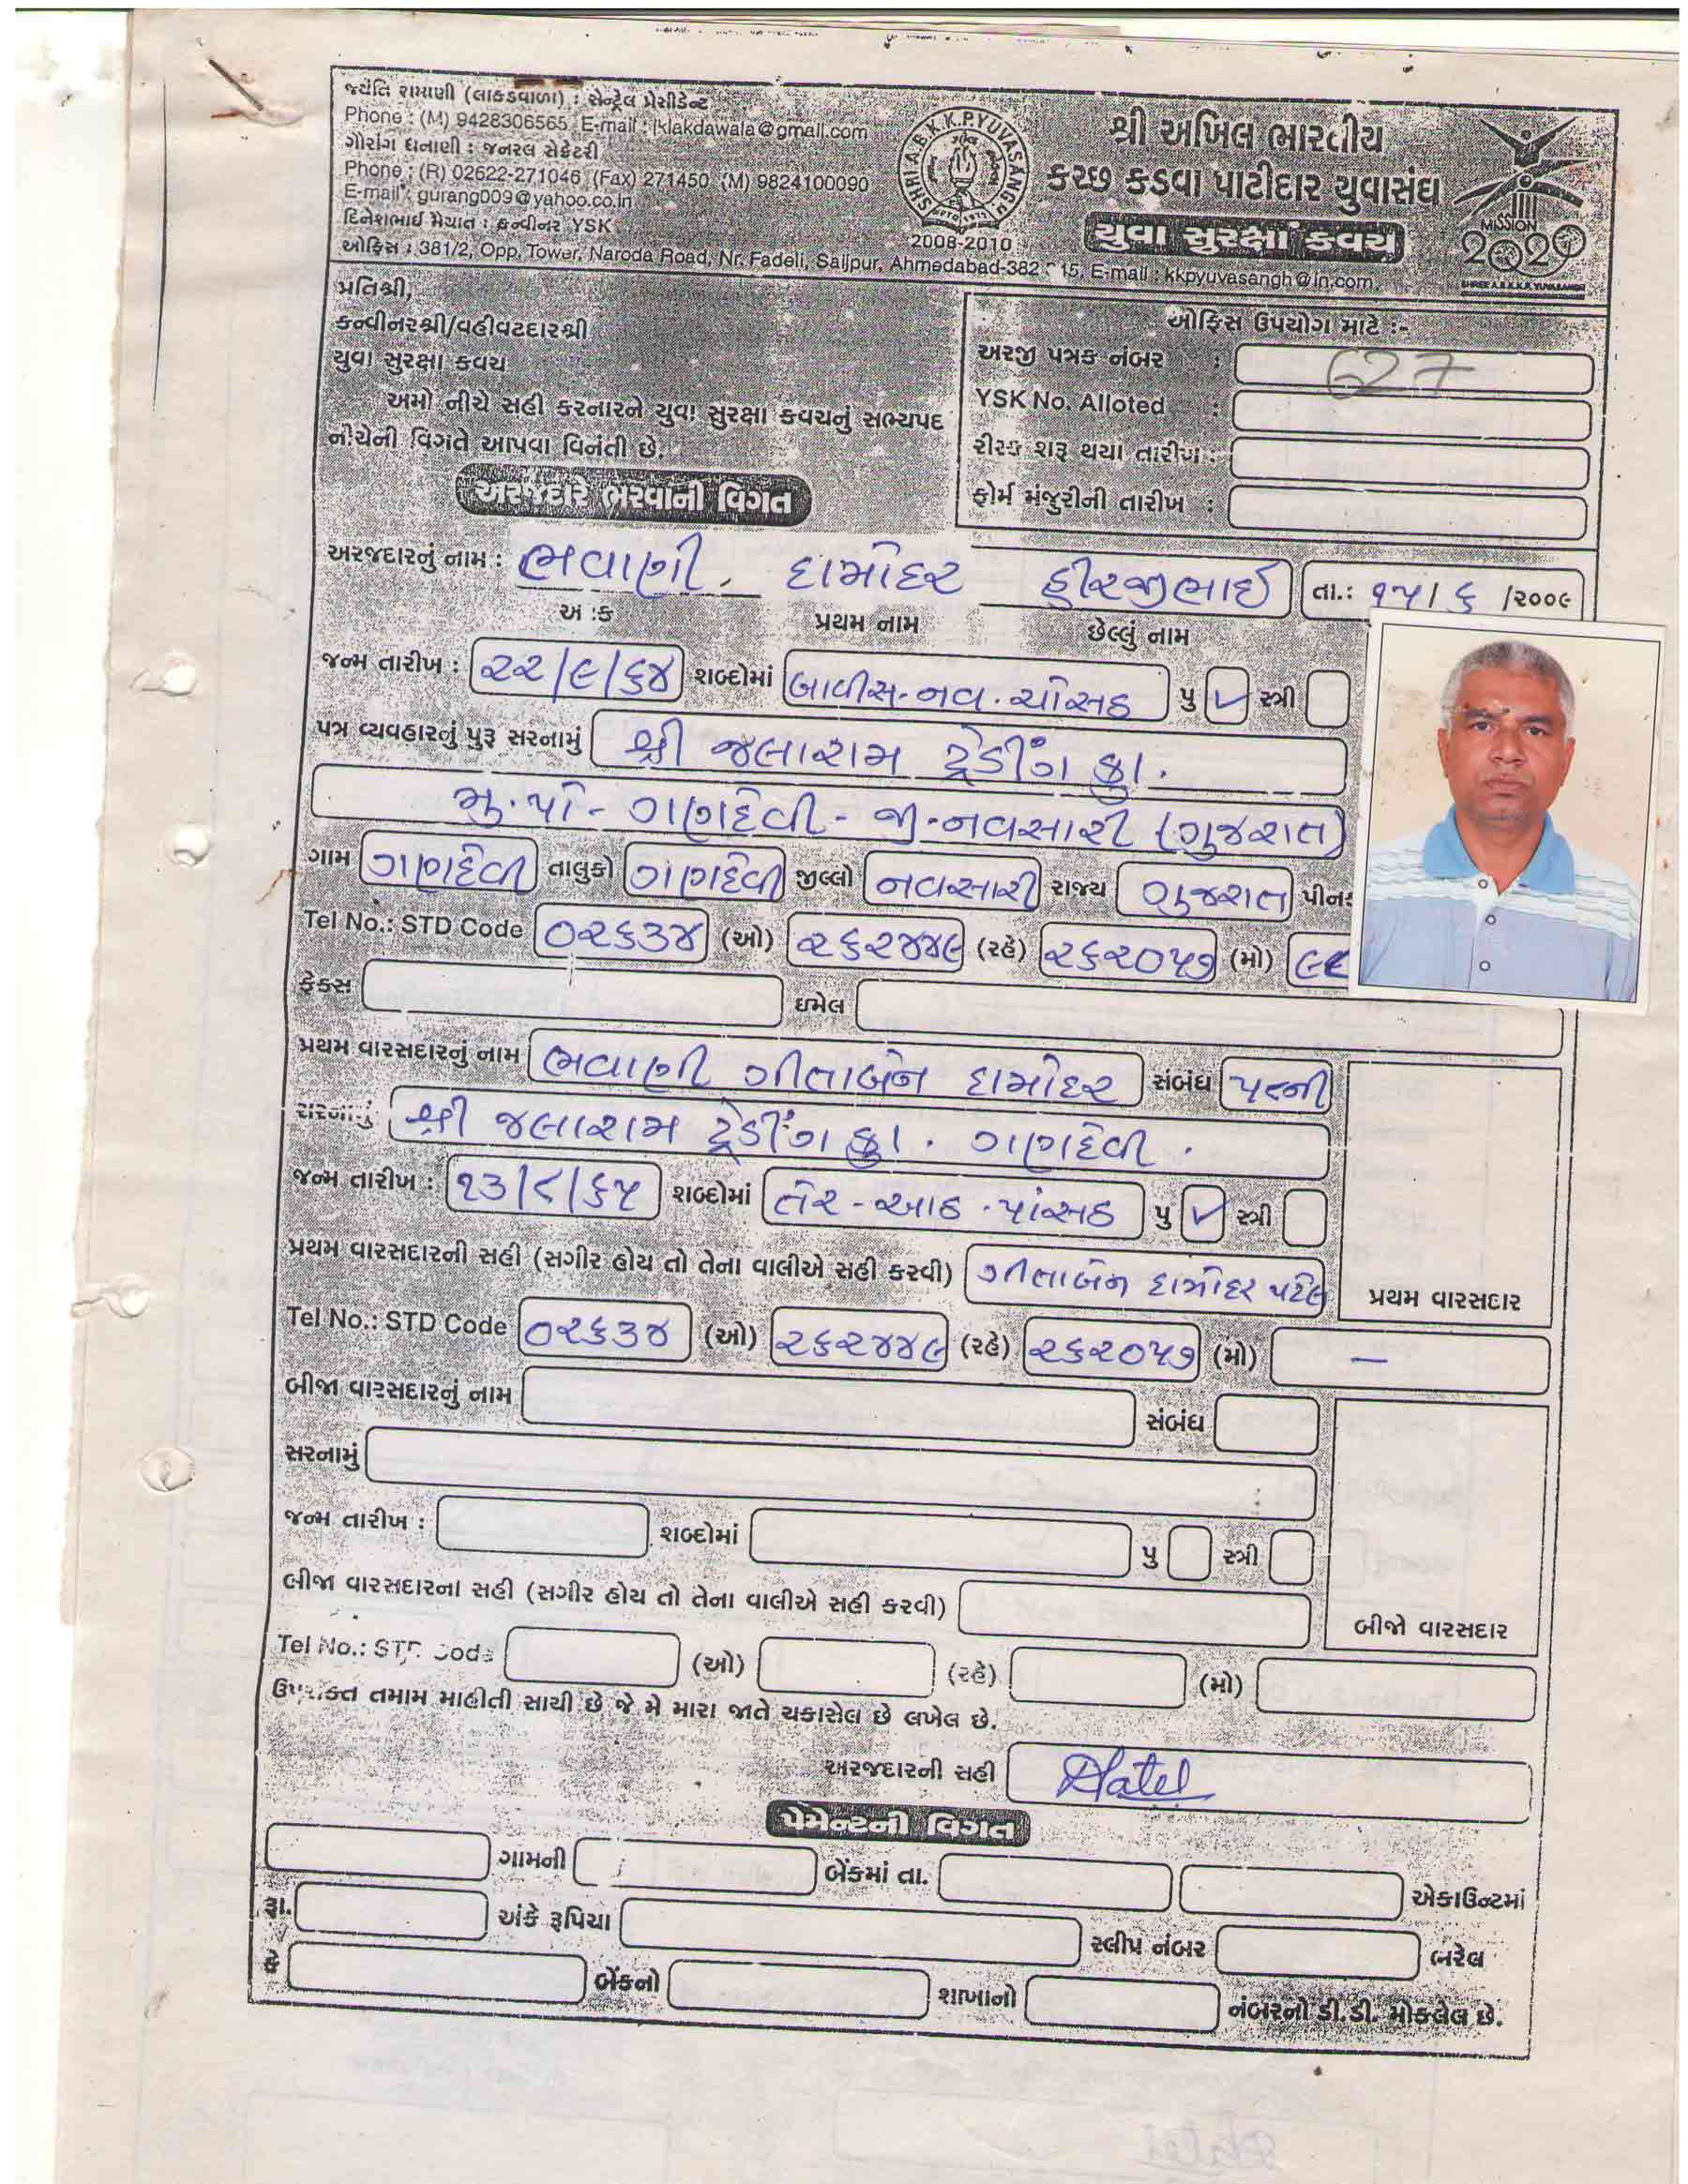 જયંતિ રામાણી (લાકડાવાળા) : સેન્ટ્રલ પ્રેસીડેન્ટ
Phone : (M) 9428306565 E-mail : jklakdawala@gmail.com
ગૌરાંગ ધનાણી : જનરલ સેક્રેટરી
Phone : (R) 02622-271046 (Fax) 271450 (M) 9824100090
E-mail : gurang009@yahoo.co.in
દિનેશભાઈ મેયાત : કન્વીનર YSK
ઓફિસ : 381/2, Opp. Tower, Naroda Road, Nr. Fadeli, Saijpur, Ahmedabad-382 15, E-mail : kkpyuvasangh@in.com
SHRI A.B.K.K.P. YUVASANGH
2008-2010
શ્રી અખિલ ભારતીય
કચ્છ કડવા પાટીદાર યુવાસંઘ
યુવા સુરક્ષા કવચ
MISSION
2020
SHREE A.B.K.K.P. YUVASANGH
પ્રતિશ્રી,
કન્વીનરશ્રી/વહીવટદારશ્રી
યુવા સુરક્ષા કવચ
અમો નીચે સહી કરનારને યુવા સુરક્ષા કવચનું સભ્યપદ
નીચેની વિગતે આપવા વિનંતી છે.
ઓફિસ ઉપયોગ માટે :-
અરજી પત્રક નંબર : 627
YSK No. Alloted :
રીસ્ક શરૂ થયા તારીખ :
ફોર્મ મંજુરીની તારીખ :
અરજદારે ભરવાની વિગત
અરજદારનું નામ : ભવાણી. દામોદર હીરજીભાઈ તા.: ૧૫/ ૬ /૨૦૦૯
અ :ક પ્રથમ નામ છેલ્લું નામ
જન્મ તારીખ : ૨૨/૯/૬૪ શબ્દોમાં બાવીસ-નવ. ચોસઠ પુ ✓ સ્ત્રી
પત્ર વ્યવહારનું પુરૂ સરનામું શ્રી જલારામ ટ્રેડીંગ કું.
મુ.પો- ગણદેવી- જી-નવસારી (ગુજરાત)
ગામ ગણદેવી તાલુકો ગણદેવી જીલ્લો નવસારી રાજ્ય ગુજરાત પીન
Tel No.: STD Code ૦૨૬૩૪ (ઓ) ૨૬૨૪૪૯ (રહે) ૨૬૨૦૫૭ (મો)
ફેક્સ ઇમેલ
પ્રથમ વારસદારનું નામ ભવાણી ગીતાબેન દામોદર સંબંધ પત્ની
સરનામું શ્રી જલારામ ટ્રેડીંગ કું. ગણદેવી.
જન્મ તારીખ : ૧૩/૮/૬૫ શબ્દોમાં તેર-આઠ-પાંસઠ પુ ✓ સ્ત્રી
પ્રથમ વારસદારની સહી (સગીર હોય તો તેના વાલીએ સહી કરવી) ગીતાબેન દામોદર પટેલ
પ્રથમ વારસદાર
Tel No.: STD Code ૦૨૬૩૪ (ઓ) ૨૬૨૪૪૯ (રહે) ૨૬૨૦૫૭ (મો) —
બીજા વારસદારનું નામ સંબંધ
સરનામું
જન્મ તારીખ : શબ્દોમાં પુ સ્ત્રી
બીજા વારસદારના સહી (સગીર હોય તો તેના વાલીએ સહી કરવી)
બીજો વારસદાર
Tel No.: STD Code (ઓ) (રહે) (મો)
ઉપરોક્ત તમામ માહીતી સાચી છે જે મે મારા જાતે ચકાસેલ છે લખેલ છે.
અરજદારની સહી DPatel
પેમેન્ટની વિગત
ગામની બેંકમાં તા. એકાઉન્ટમાં
રૂા. અંકે રૂપિયા સ્લીપ નંબર ભરેલ
કે બેંકનો શાખાનો નંબરનો ડી.ડી. મોકલેલ છે.